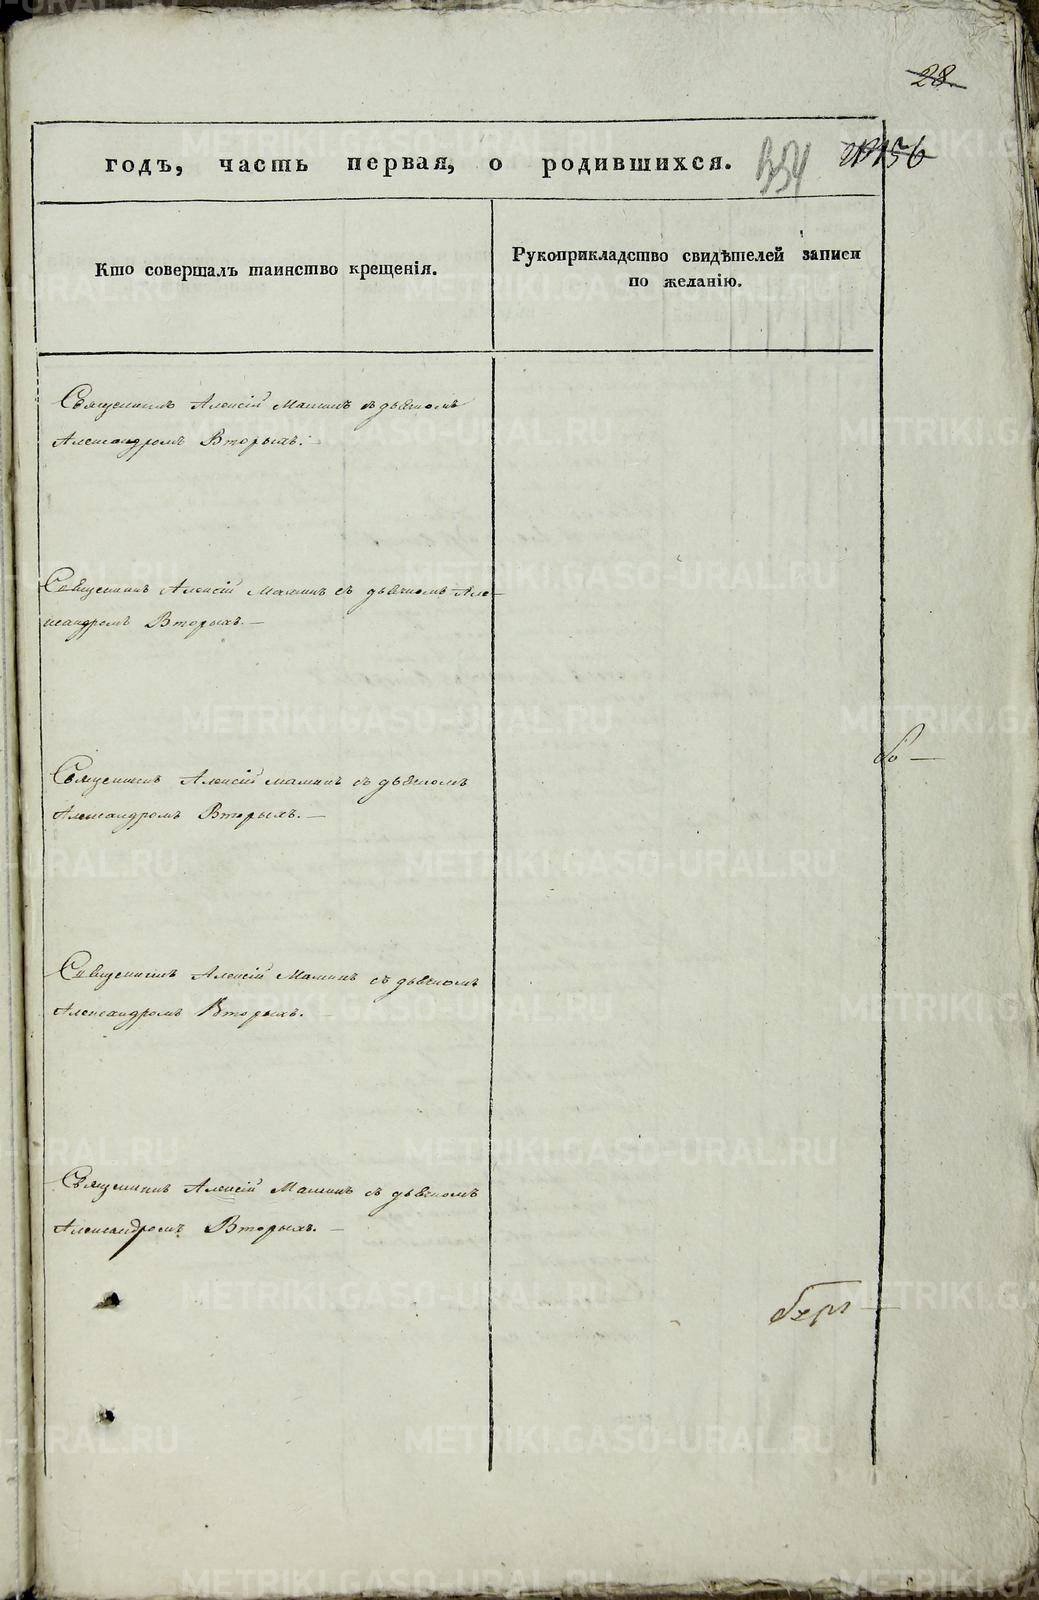 28
годъ, часть первая, о родившихся. 354
Кто совершалъ таинство крещенія.
Рукоприкладство свидѣтелей записи
по желанію.
Священникъ Алексій Маминъ съ дьячкомъ
Александромъ Вторыхъ.
Священникъ Алексій Маминъ съ дьячкомъ Але-
ксандромъ Вторыхъ.—
Священникъ Алексій Маминъ съ дьячкомъ
Александромъ Вторыхъ.—
Священникъ Алексій Маминъ съ дьячкомъ
Александромъ Вторыхъ.—
Священникъ Алексій Маминъ съ дьячкомъ
Александромъ Вторыхъ.—
METRIKI.GASO-URAL.RU